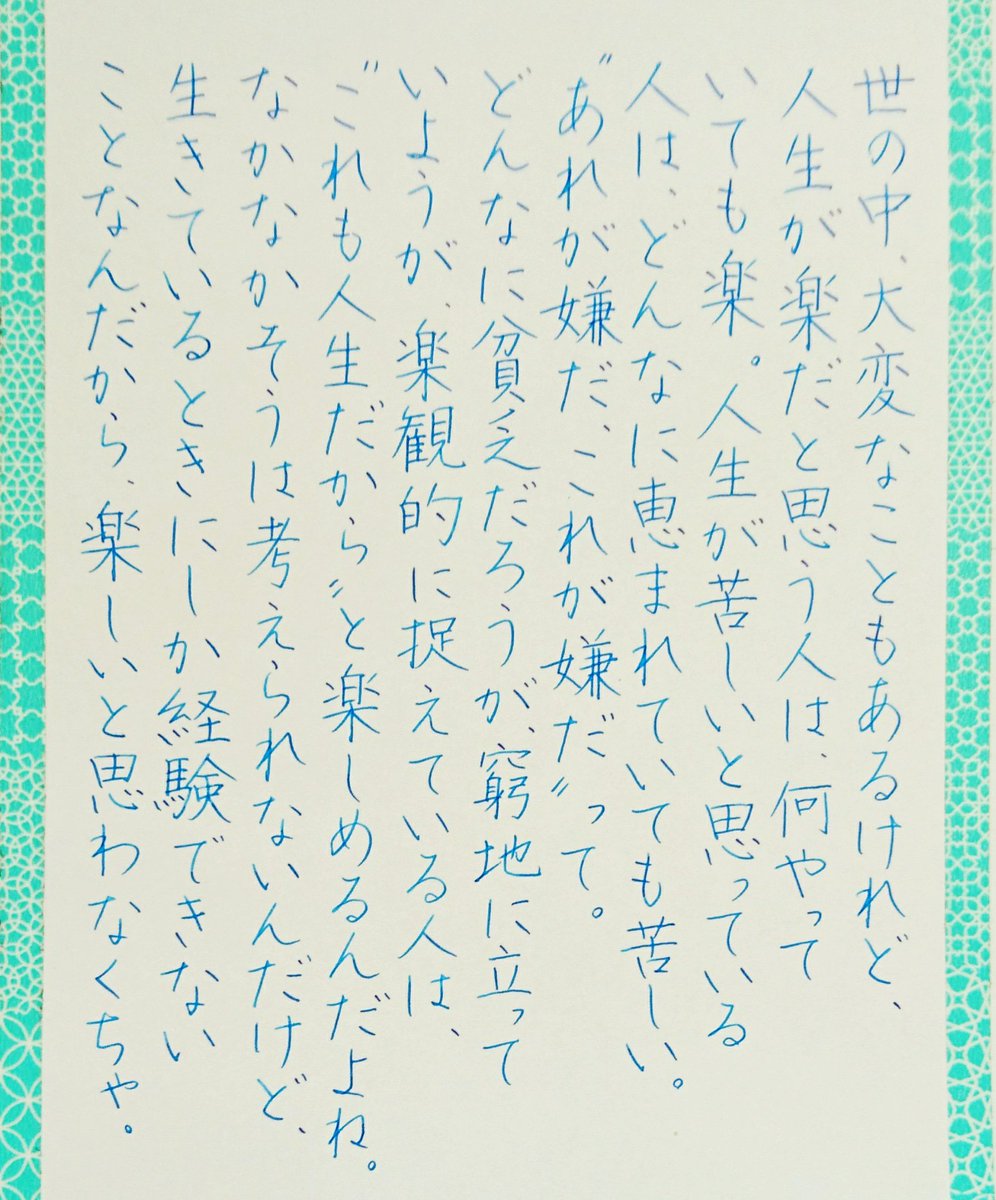 世の中、大変なこともあるけれど、
人生が楽だと思う人は、何やって
いても楽。人生が苦しいと思っている
人は、どんなに恵まれていても苦しい。
〝あれが嫌だ、これが嫌だ〟って。
どんなに貧乏だろうが、窮地に立って
いようが、楽観的に捉えている人は、
〝これも人生だから〟と楽しめるんだよね。
なかなかそうは考えられないんだけど、
生きているときにしか経験できない
ことなんだから、楽しいと思わなくちゃ。